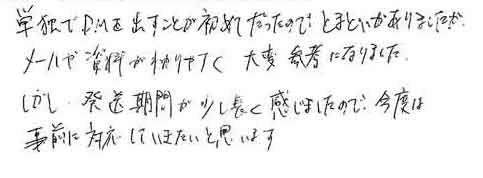 単独でDMを出すことが初めてだったので、とまどいがありましたが、
メールや資料がわかりやすく 大変参考になりました。
しかし、発送期間が少し長く感じましたので、今度は
事前に対応していきたいと思います